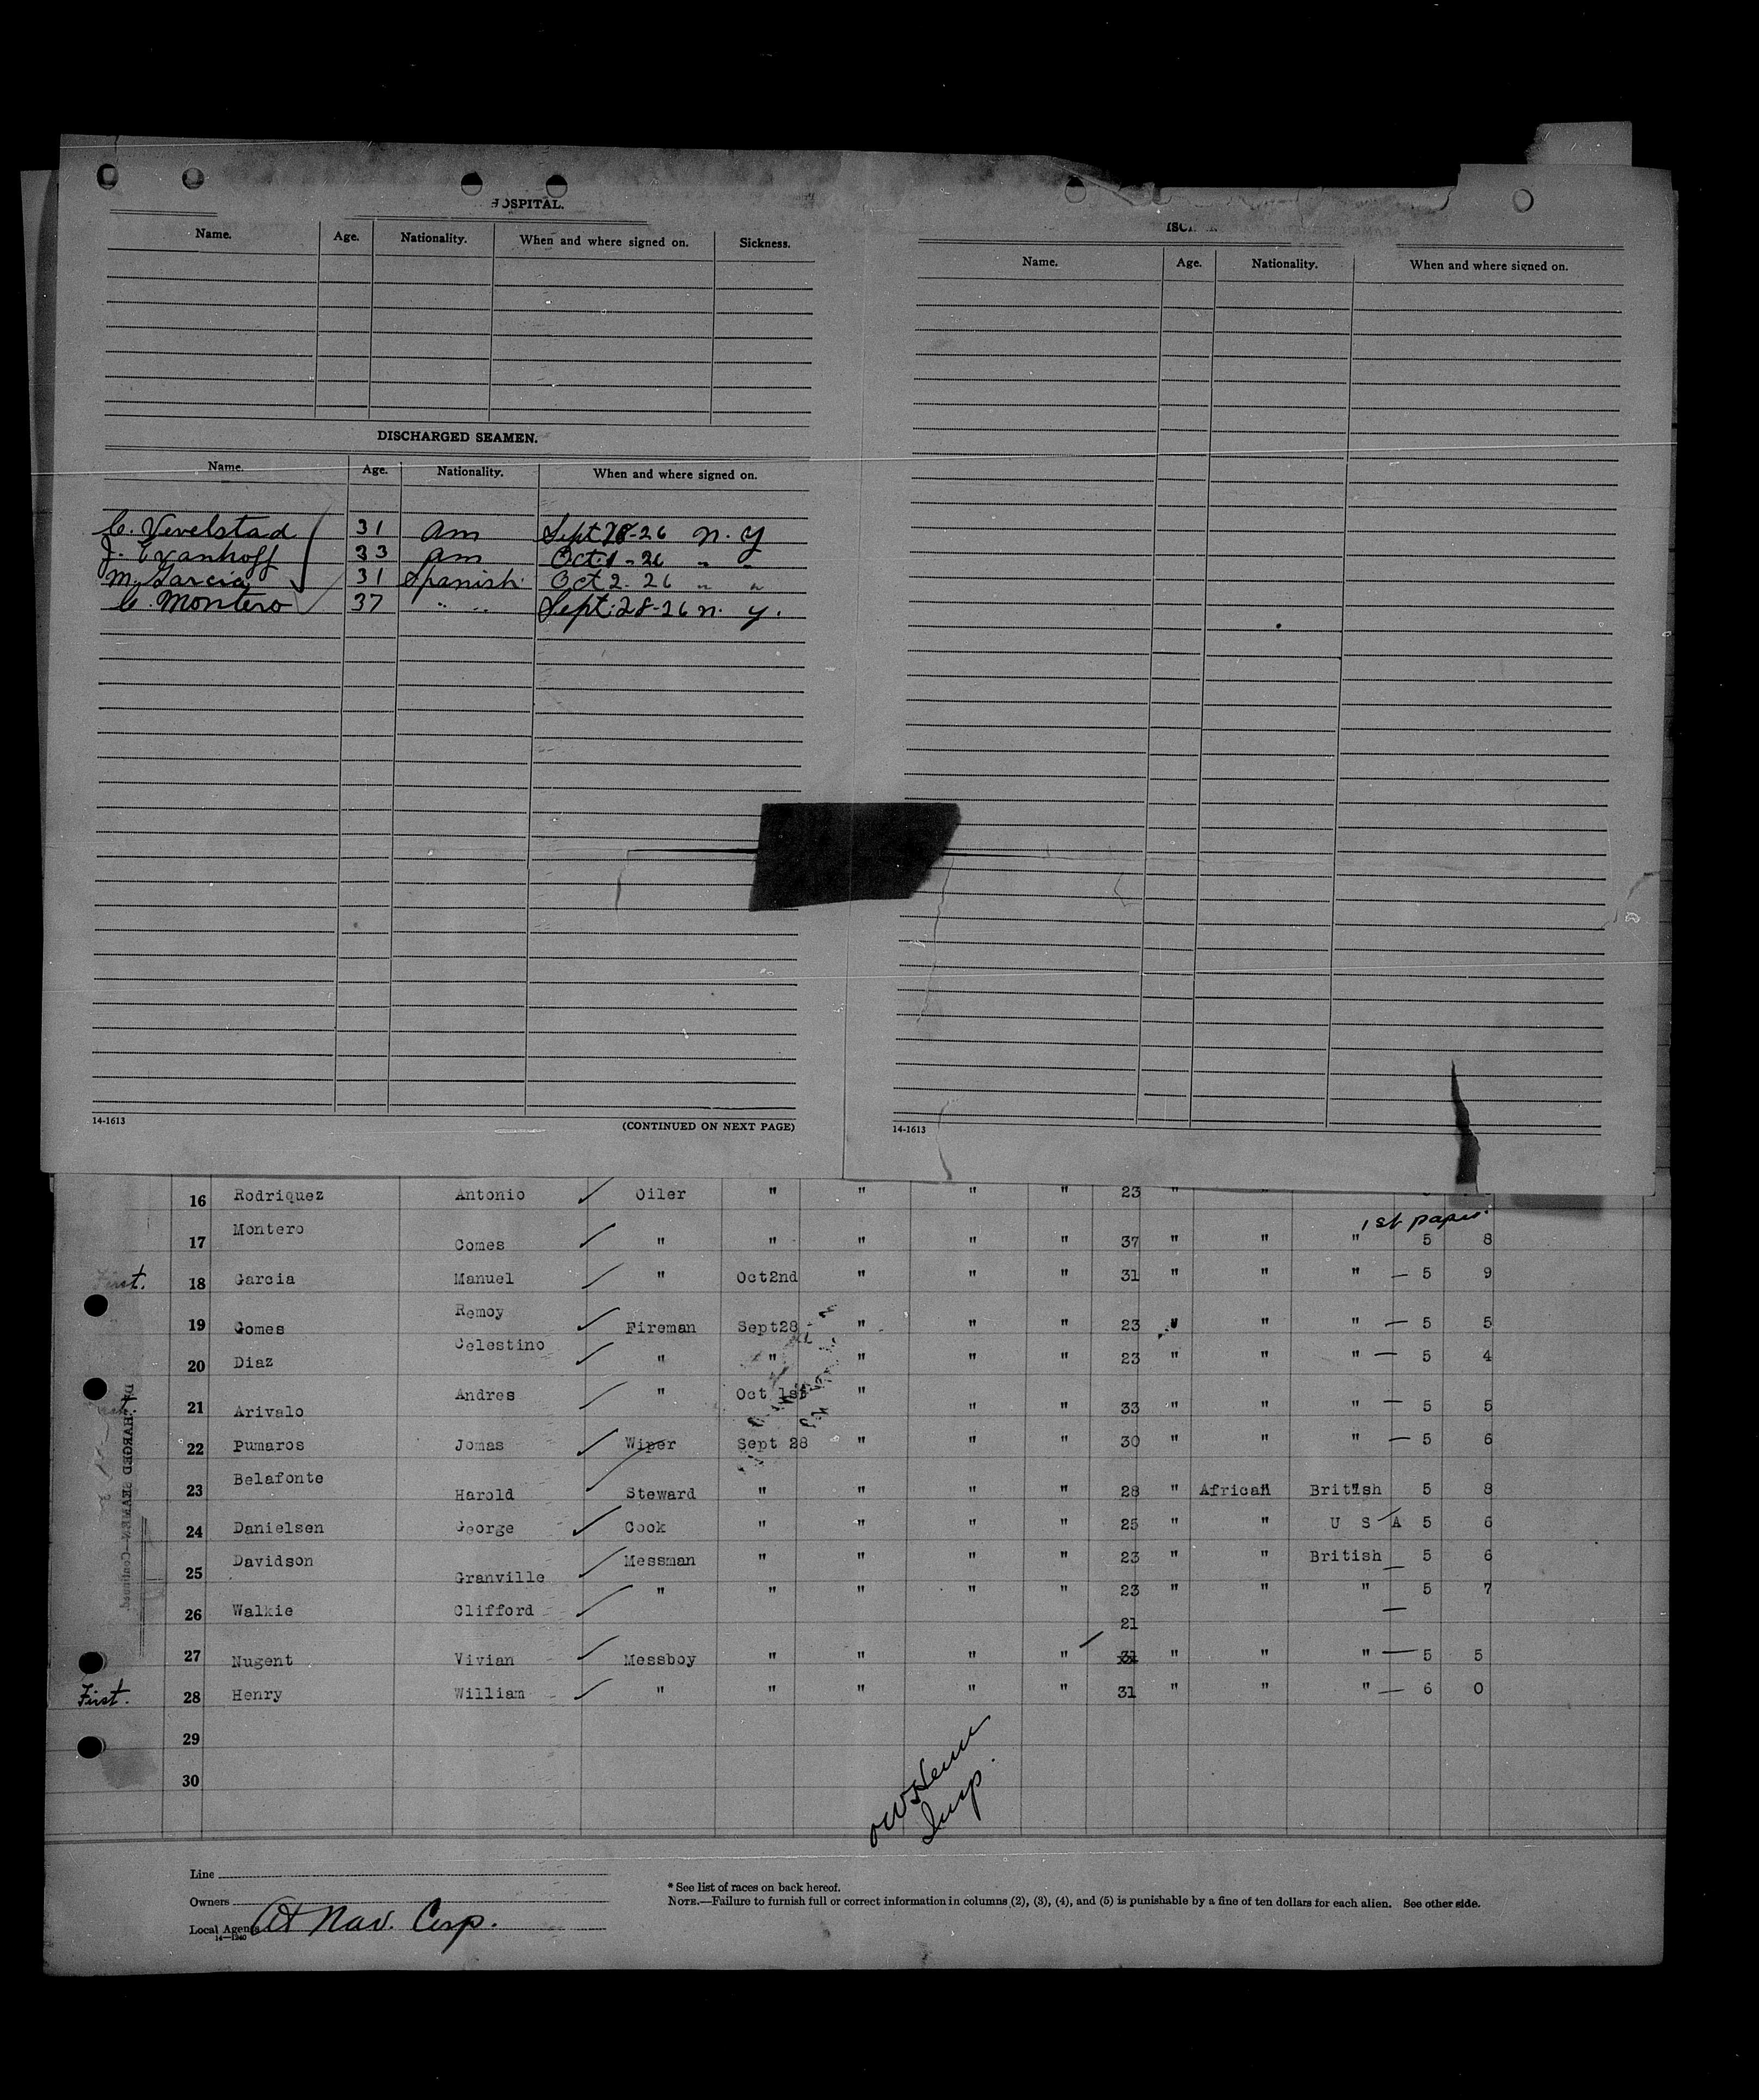 HOSPITAL.
Name. Age. Nationality. When and where signed on. Sickness.
DISCHARGED SEAMEN.
Name. Age. Nationality. When and where signed on.
C. Vevelstad 31 Am Sept 28-26 N. Y
J. Evanhoff 33 Am Oct 1-26 " "
M. Garcia 31 Spanish Oct 2. 26 " "
C. Montero 37 " " Sept. 28-26 n. y.
14-1613 (CONTINUED ON NEXT PAGE)
Name. Age. Nationality. When and where signed on.
14-1613
16 Rodriquez Antonio Oiler " " " " 23 " "
1st paper.
17 Montero Gomes " " " " " 37 " " " 5 8
First. 18 Garcia Manuel " Oct2nd " " " 31 " " " — 5 9
19 Gomes Remoy Fireman Sept28 " " " 23 " " " — 5 5
20 Diaz Celestino " " " " " 23 " " " — 5 4
21 Arivalo Andres " Oct 1st " " " 33 " " " — 5 5
22 Pumaros Jomas Wiper Sept 28 " " " 30 " " " — 5 6
23 Belafonte Harold Steward " " " " 28 " African British 5 8
24 Danielsen George Cook " " " " 25 " " U S A 5 6
25 Davidson Granville Messman " " " " 23 " " British — 5 6
26 Walkie Clifford " " " " " 23 " " " — 5 7
21
27 Nugent Vivian Messboy " " " " 31 " " " — 5 5
First. 28 Henry William " " " " " 31 " " " — 6 0
29
30
Insp.
DISCHARGED SEAMEN—Continued
Line
Owners
Local Agents At Nav. Corp.
14—1240
* See list of races on back hereof.
NOTE.—Failure to furnish full or correct information in columns (2), (3), (4), and (5) is punishable by a fine of ten dollars for each alien. See other side.